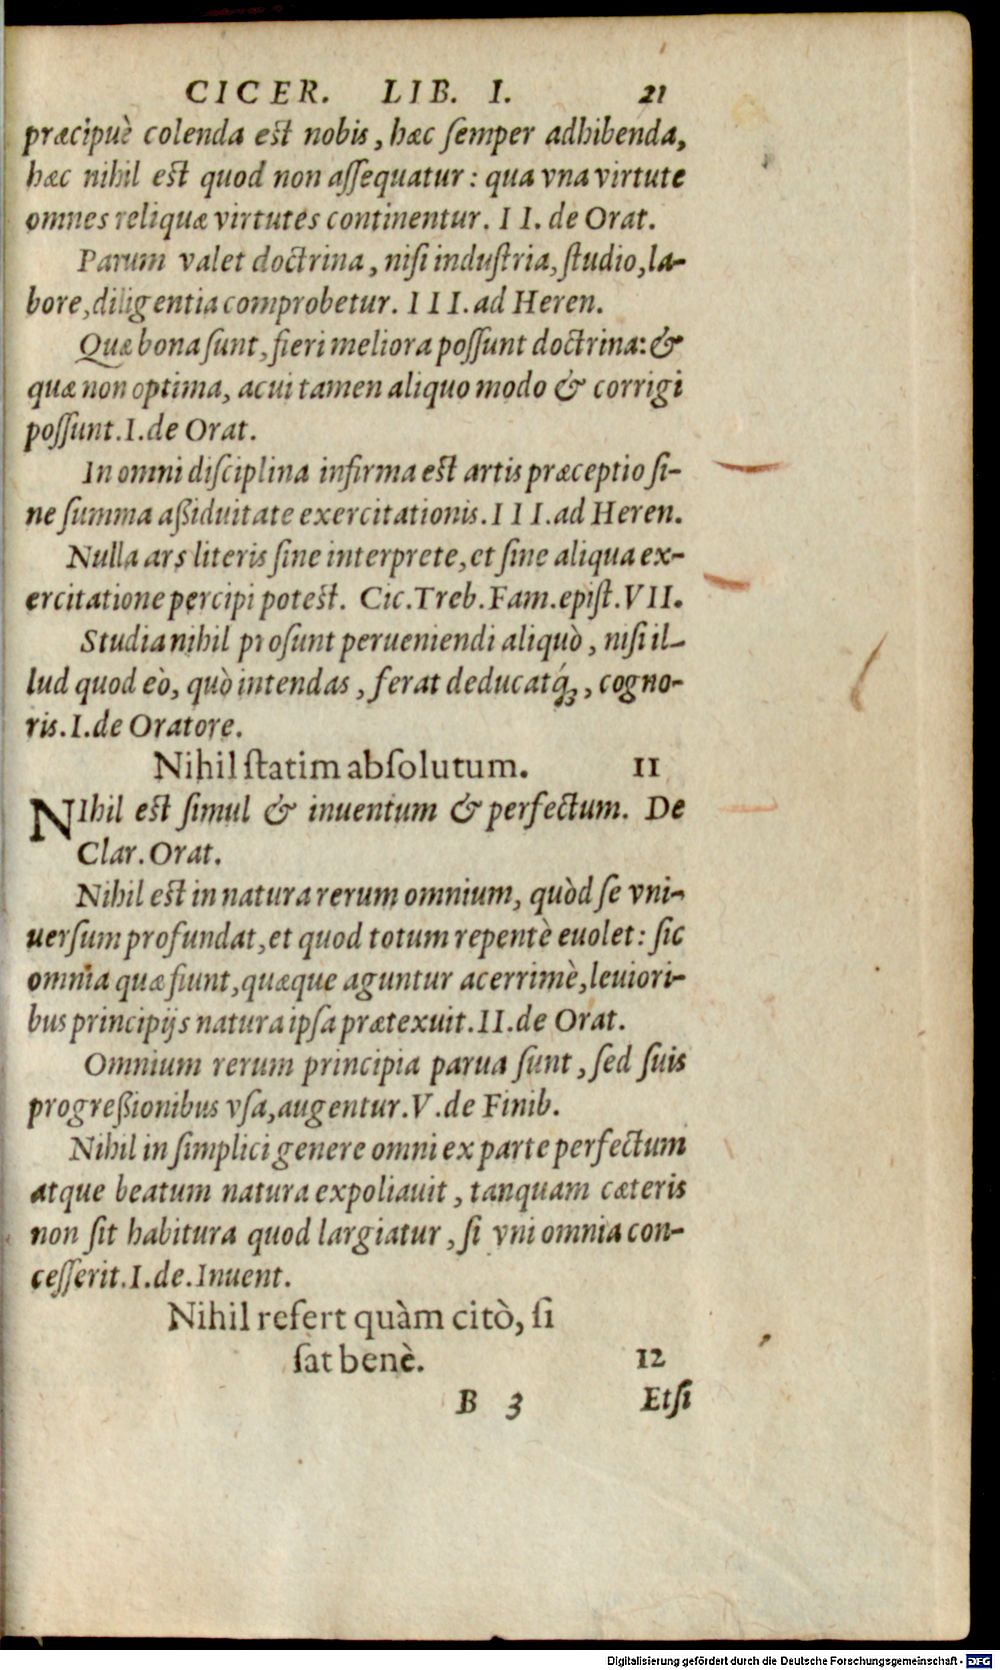 CICER. LIB. I. 21
præcipuè colenda est nobis, hæc ſemper adhibenda,
hæc nihil est quod non aſſequatur: qua vna virtute
omnes reliquæ virtutes continentur. II. de Orat.
Parum valet doctrina, niſi induſtria, ſtudio, la-
bore, diligentia comprobetur. III. ad Heren.
Quæ bona ſunt, fieri meliora poſſunt doctrina: &
quæ non optima, acui tamen aliquo modo & corrigi
poſſunt. I. de Orat.
In omni diſciplina infirma est artis præceptio ſi-
ne ſumma aßiduitate exercitationis. III. ad Heren.
Nulla ars literis ſine interprete, et ſine aliqua ex-
ercitatione percipi potest. Cic. Treb. Fam. epiſt. VII.
Studia nihil proſunt perueniendi aliquò, niſi il-
lud quod eò, quò intendas, ferat deducatq́;, cogno-
ris. I. de Oratore.
Nihil ſtatim abſolutum. 11
NIhil est ſimul & inuentum & perfectum. De
Clar. Orat.
Nihil est in natura rerum omnium, quòd ſe vni-
uerſum profundat, et quod totum repentè euolet: ſic
omnia quæ fiunt, quæque aguntur acerrimè, leuiori-
bus principijs natura ipſa prætexuit. II. de Orat.
Omnium rerum principia parua ſunt, ſed ſuis
progreßionibus vſa, augentur. V. de Finib.
Nihil in ſimplici genere omni ex parte perfectum
atque beatum natura expoliauit, tanquam cæteris
non ſit habitura quod largiatur, ſi vni omnia con-
ceſſerit. I. de. Inuent.
Nihil refert quàm citò, ſi
ſat benè. 12
B 3 Etſi
Digitalisierung gefördert durch die Deutsche Forschungsgemeinschaft - DFG